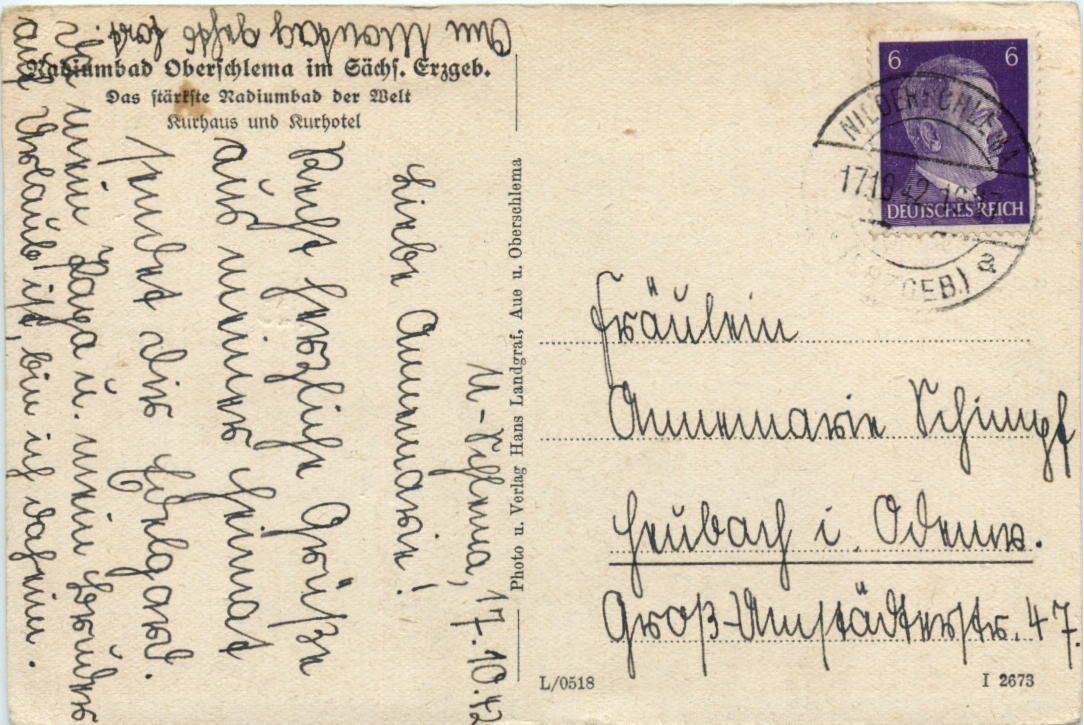 Radiumbad Oberschlema im Sächs. Erzgeb.
Das stärkste Radiumbad der Welt
Kurhaus und Kurhotel
U-Schlema, 17.10.42
Liebe Annemarie!
Recht herzliche Grüße
aus meiner Heimat
sendet Dir Edelgard.
Da mein Papa u. mein Bruder
auf Urlaub ist, bin ich daheim.
Am Montag gehts fort.
Photo u. Verlag Hans Landgraf, Aue u. Oberschlema
6 6
DEUTSCHES REICH
NIEDERSCHLEMA
17.10.42
(ERZGEB.) a
Fräulein
Annemarie Schimpf
Heubach i. Odenw.
Groß-Umstädterstr. 47.
L/0518
I 2673